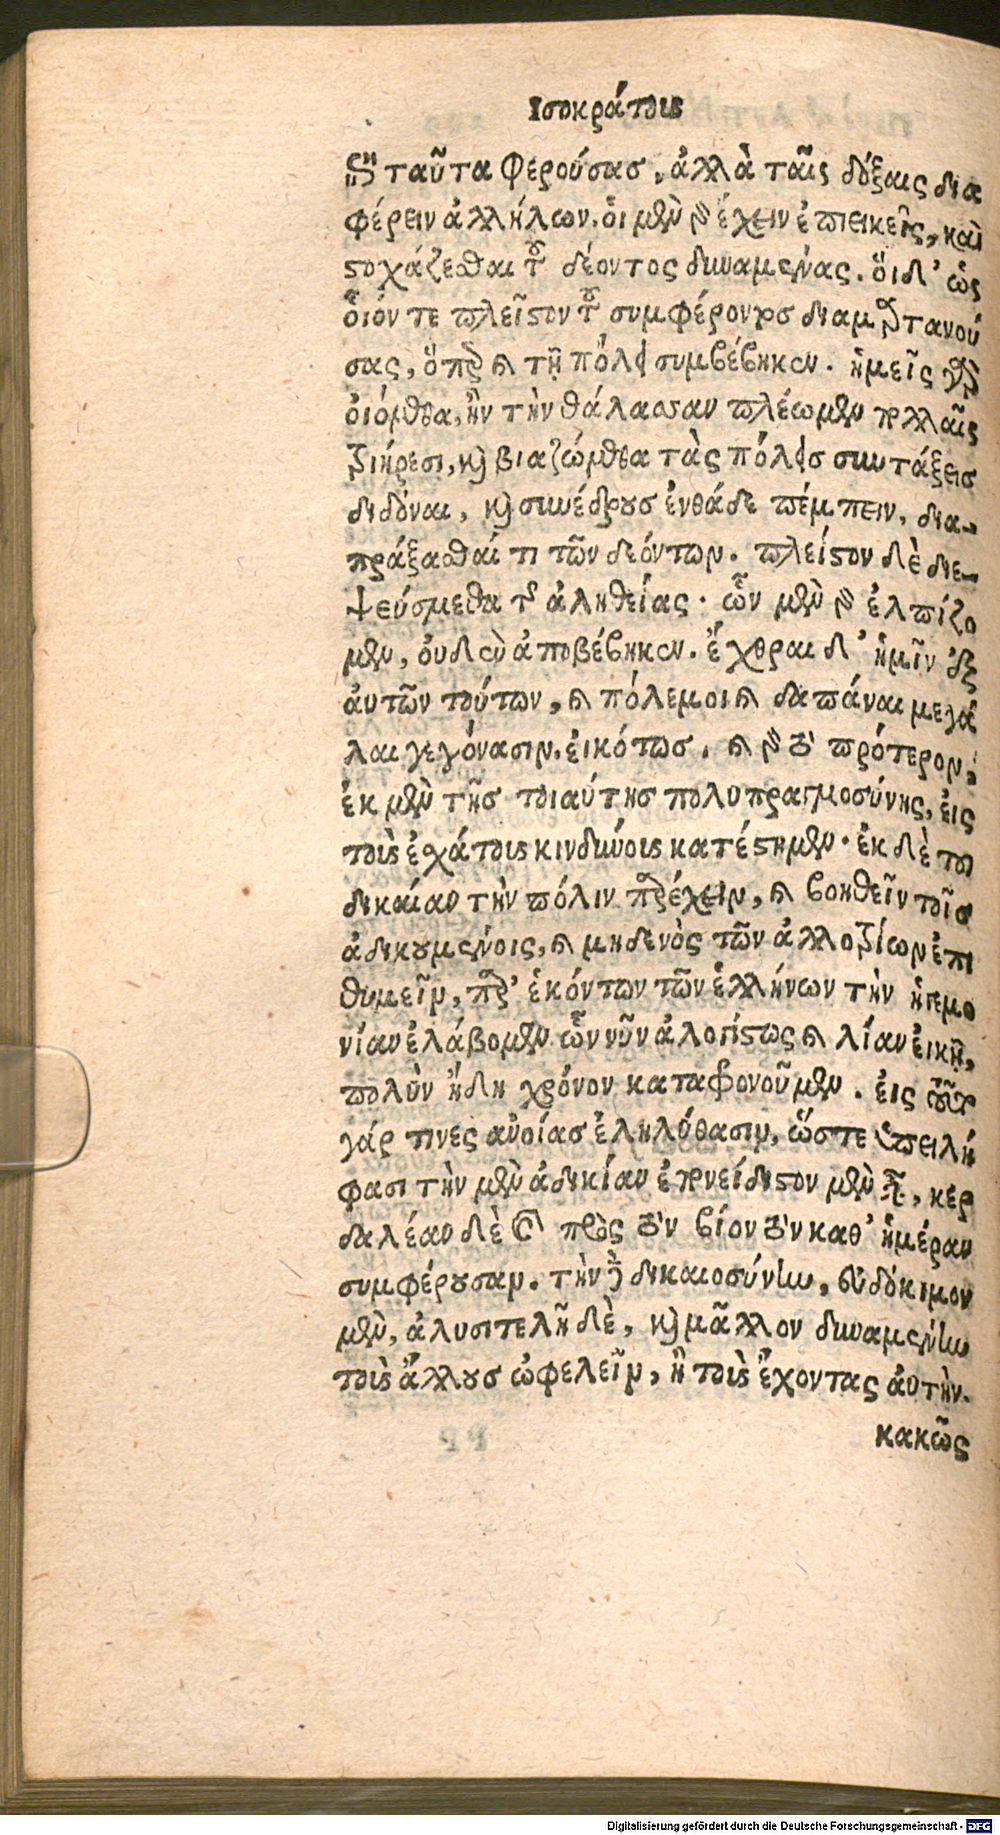 Ισοκράτους
ἐπὶ ταῦτα φερούσας, ἀλλὰ ταῖς δόξαις δια
φέρειν ἀλλήλων. οἱ μὲν γὰρ ἔχειν ἐπιεικεῖς, καὶ
στοχάζεσθαι τοῦ δέοντος δυναμένας. οἱ δ' ὡς
οἷόν τε πλεῖστον τοῦ συμφέροντος διαμαρτανού
σας, ὅπερ καὶ τῇ πόλει συμβέβηκεν. ἡμεῖς γὰρ
οἰόμεθα, ἢν τὴν θάλασσαν πλέωμεν πολλαῖς
τριήρεσι, καὶ βιαζώμεθα τὰς πόλεις συντάξεις
διδόναι, καὶ συνέδρους ἐνθάδε πέμπειν, δια-
πράξασθαί τι τῶν δεόντων. πλεῖστον δὲ διε-
ψεύσμεθα τῆς ἀληθείας. ὧν μὲν γὰρ ἐλπίζο
μεν, οὐδὲν ἀποβέβηκεν. ἔχθραι δ' ἡμῖν ἐξ
αὐτῶν τούτων, καὶ πόλεμοι καὶ δαπάναι μεγά
λαι γεγόνασιν. εἰκότως. καὶ γὰρ τὸ πρότερον,
ἐκ μὲν τῆς τοιαύτης πολυπραγμοσύνης, εἰς
τοὺς ἐσχάτους κινδύνους κατέστημεν. ἐκ δὲ τοῦ
δικαίαν τὴν πόλιν παρέχειν, καὶ βοηθεῖν τοῖς
ἀδικουμένοις, καὶ μηδενὸς τῶν ἀλλοτρίων ἐπι
θυμεῖν, παρ' ἑκόντων τῶν ἑλλήνων τὴν ἡγεμο
νίαν ἐλάβομεν ὧν νῦν ἀλογίστως καὶ λίαν εἰκῇ,
πολὺν ἤδη χρόνον καταφρονοῦμεν. εἰς τοῦτο
γάρ τινες ἀνοίας ἐληλύθασιν, ὥστε ὑπειλή
φασι τὴν μὲν ἀδικίαν ἐπονείδιστον μὲν εἶναι, κερ
δαλέαν δὲ καὶ πρὸς τὸν βίον τὸν καθ' ἡμέραν
συμφέρουσαν. τὴν δὲ δικαιοσύνην, εὐδόκιμον
μὲν, ἀλυσιτελῆ δὲ, καὶ μᾶλλον δυναμένην
τοὺς ἄλλους ὠφελεῖν, ἢ τοὺς ἔχοντας αὐτήν.
κακῶς
Digitalisierung gefördert durch die Deutsche Forschungsgemeinschaft - DFG